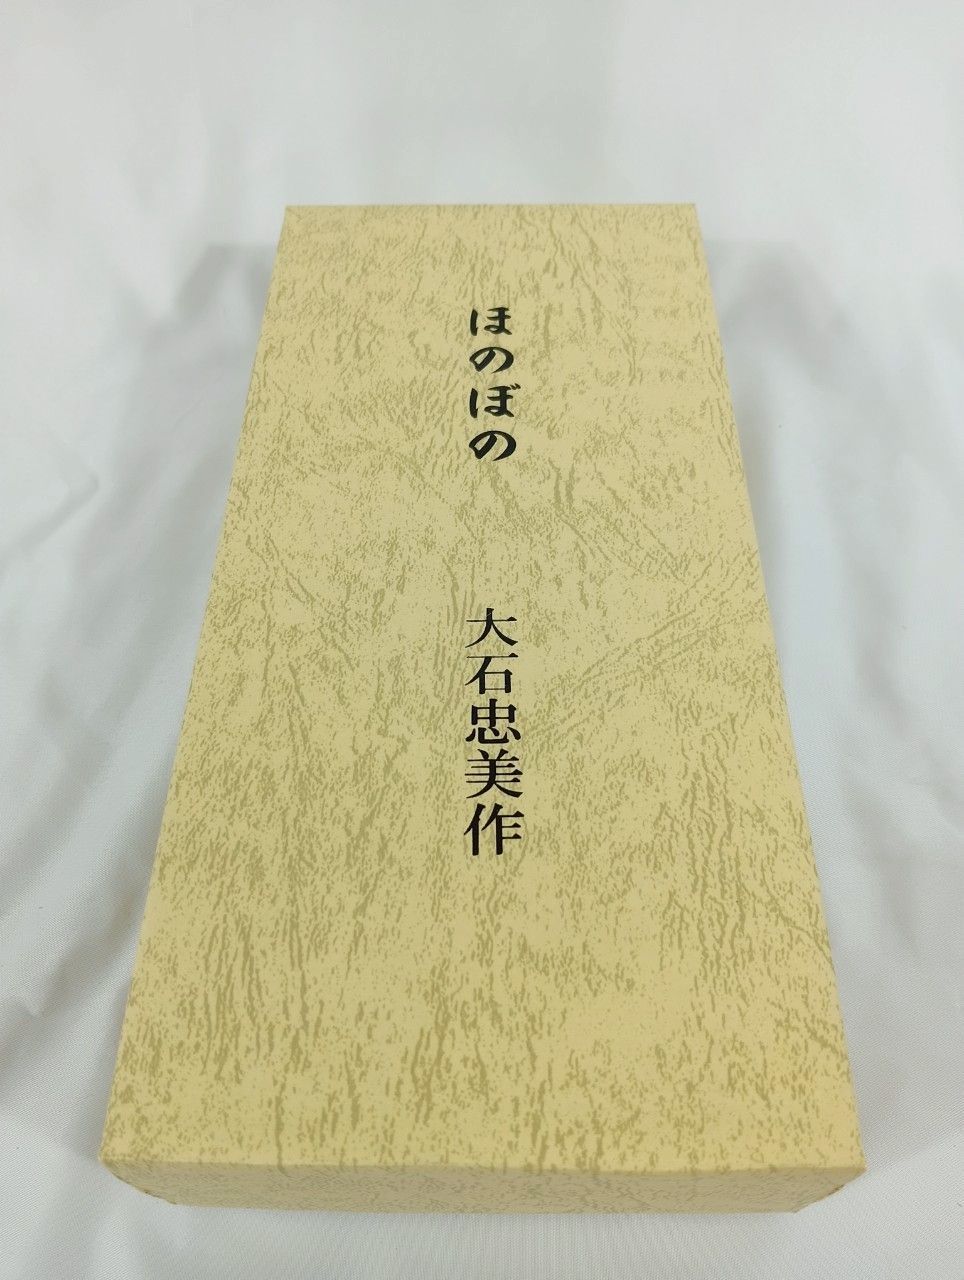 ほのぼの
大石忠美作